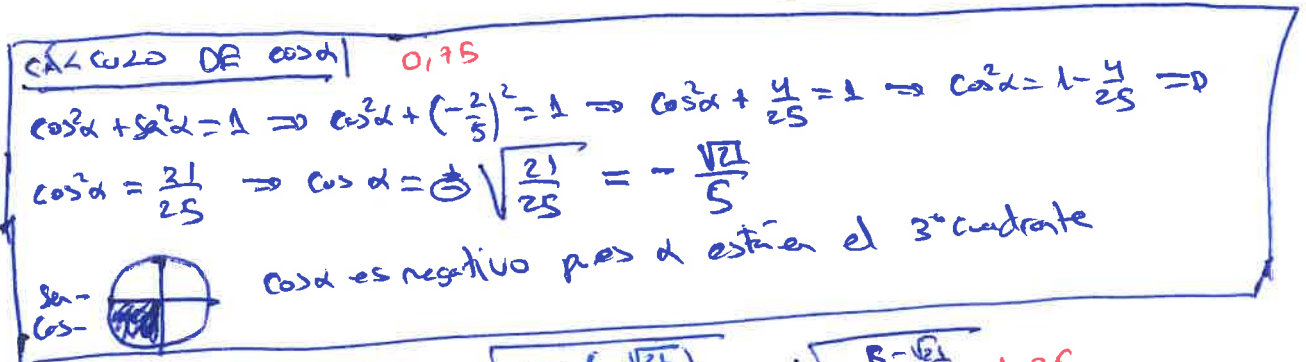 CÁLCULO DE cos α 0,75
cos²α + sen²α = 1 ⇒ cos²α + (-2/5)² = 1 ⇒ cos²α + 4/25 = 1 ⇒ cos²α = 1 - 4/25 ⇒
cos²α = 21/25 ⇒ cos α = ± √(21/25) = - √21/5
cos α es negativo pues α está en el 3er cuadrante
Sen -
Cos -